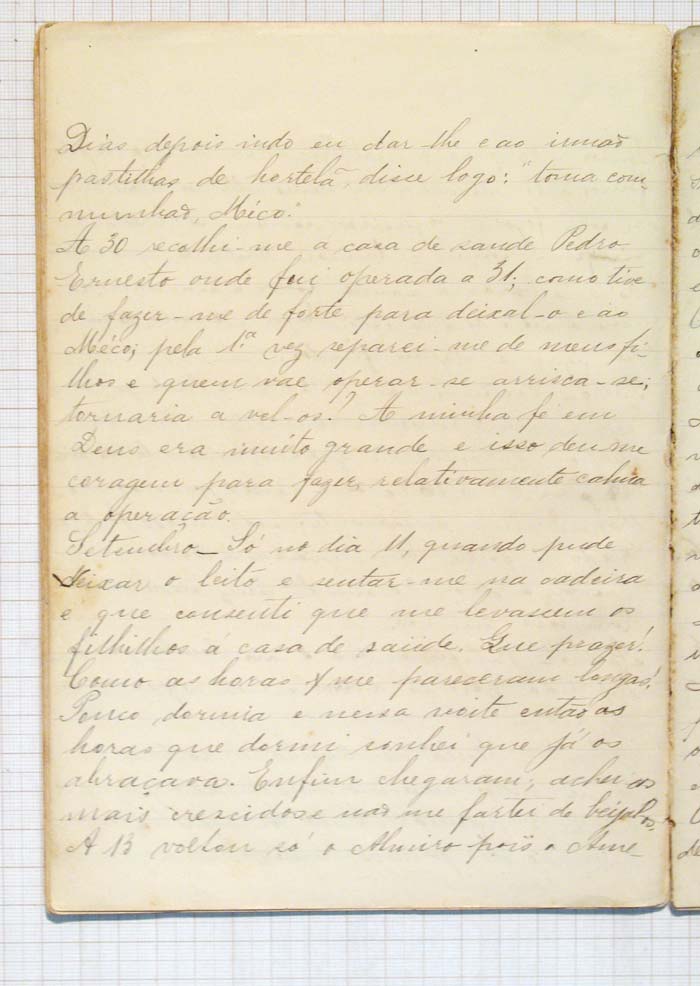 Dias depois indo eu dar-lhe e ao irmão
pastilhas de hortelã, disse logo: "toma com-
munhão, Méco.
A 30 recolhi-me a casa de saude Pedro
Ernesto onde fui operada a 31; como tive
de fazer-me de forte para deixal-o e ao
Méco; pela 1.ª vez separei-me de meus fi-
lhos e quem vae operar-se arrisca-se;
tornaria a vel-os? A minha fé em
Deus era muito grande e isso deu me
coragem para fazer relativamente calma
a operação.
Setembro_ Só no dia 11, quando pude
deixar o leito e sentar-me na cadeira
e que consenti que me levassem os
filhilhos á casa de saüde. Que prazer!
Como as horas me pareceram longas!
Pouco dormia e nessa noite então as
horas que dormi sonhei que já os
abraçava. Enfim chegaram; achei os
mais crescidos e não me fartei de beijal-os.
A 13 voltou só o Almiro poïs o Ame-